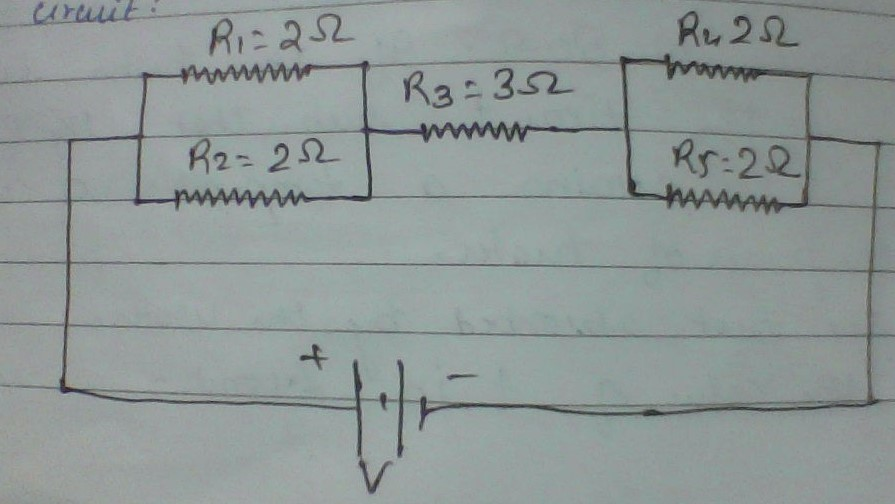 circuit:
R1=2Ω
R4 2Ω
R3=3Ω
R2=2Ω
R5=2Ω
+ -
V